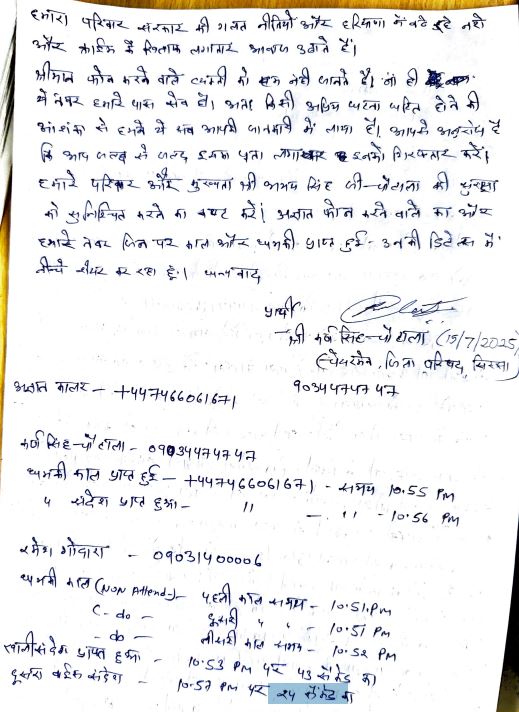 हमारा परिवार सरकार की गलत नीतियों और हरियाणा में बढ़ रहे नशे
और क्राईम के खिलाफ लगातार आवाज उठाते हैं।
श्रीमान फोन करने वाले व्यक्ति को हम नही जानते है। ना ही
ये नंबर हमारे पास सेव है। अतः किसी अप्रिय घटना घटित होने की
आशंका से हमने ये सब आपकी जानकारी में लाया है। आपसे अनुरोध है
कि आप जल्द से जल्द इसका पता लगाकर इनको गिरफ्तार करें।
हमारे परिवार और मुख्यता श्री अभय सिंह जी चौटाला की सुरक्षा
को सुनिश्चित करने का कष्ट करें। अज्ञात फोन करने वाले का और
हमारे नंबर जिन पर काल और धमकी प्राप्त हुई - उनकी डिटेल्स में
नीचे शेयर कर रहा हूँ। धन्यवाद
प्रार्थी
श्री कर्ण सिंह चौटाला (15/7/2025)
(चेयरमैन, जिला परिषद, सिरसा)
9034474747
अज्ञात कालर - +447466061671
कर्ण सिंह चौटाला - 09034474747
धमकी काल प्राप्त हुई - +447466061671 - समय 10.55 PM
" संदेश प्राप्त हुआ - " - " - 10.56 PM
रमेश गोदारा - 09031400006
धमकी काल (NON Attend) - पहली काल समय - 10.51 PM
(- do - दूसरी " " - 10.51 PM
- do - तीसरी काल समय - 10.52 PM
संदेश प्राप्त हुआ - 10.53 PM पर 43 सेकेंड का
दूसरा वाईस संदेश - 10.57 PM पर 24 सेकेंड का